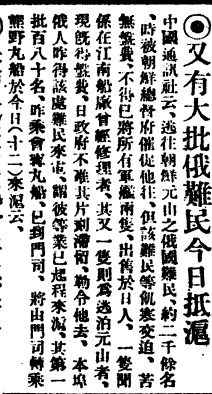 ◉又有大批俄難民今日抵滬
中國通訊社云、逃往朝鮮元山之俄國難民、約二千餘名
、時被朝鮮總督府催促他往、但該難民等飢寒交迫、苦
無盤費、不得已將所有軍艦兩隻、出舊於日人、一隻聞
係在江南船廠曾經修理者、其又一隻則為逃泊元山者、
現旣得盤費、日政府不准其片刻濡留、勒令他去、本埠
俄人昨得該處難民來電、謂彼等業已起程來滬、其第一
批百八十名、昨乘會寗丸船、已到門司、將由門司轉乘
熊野丸船於今日(十二)來滬云、